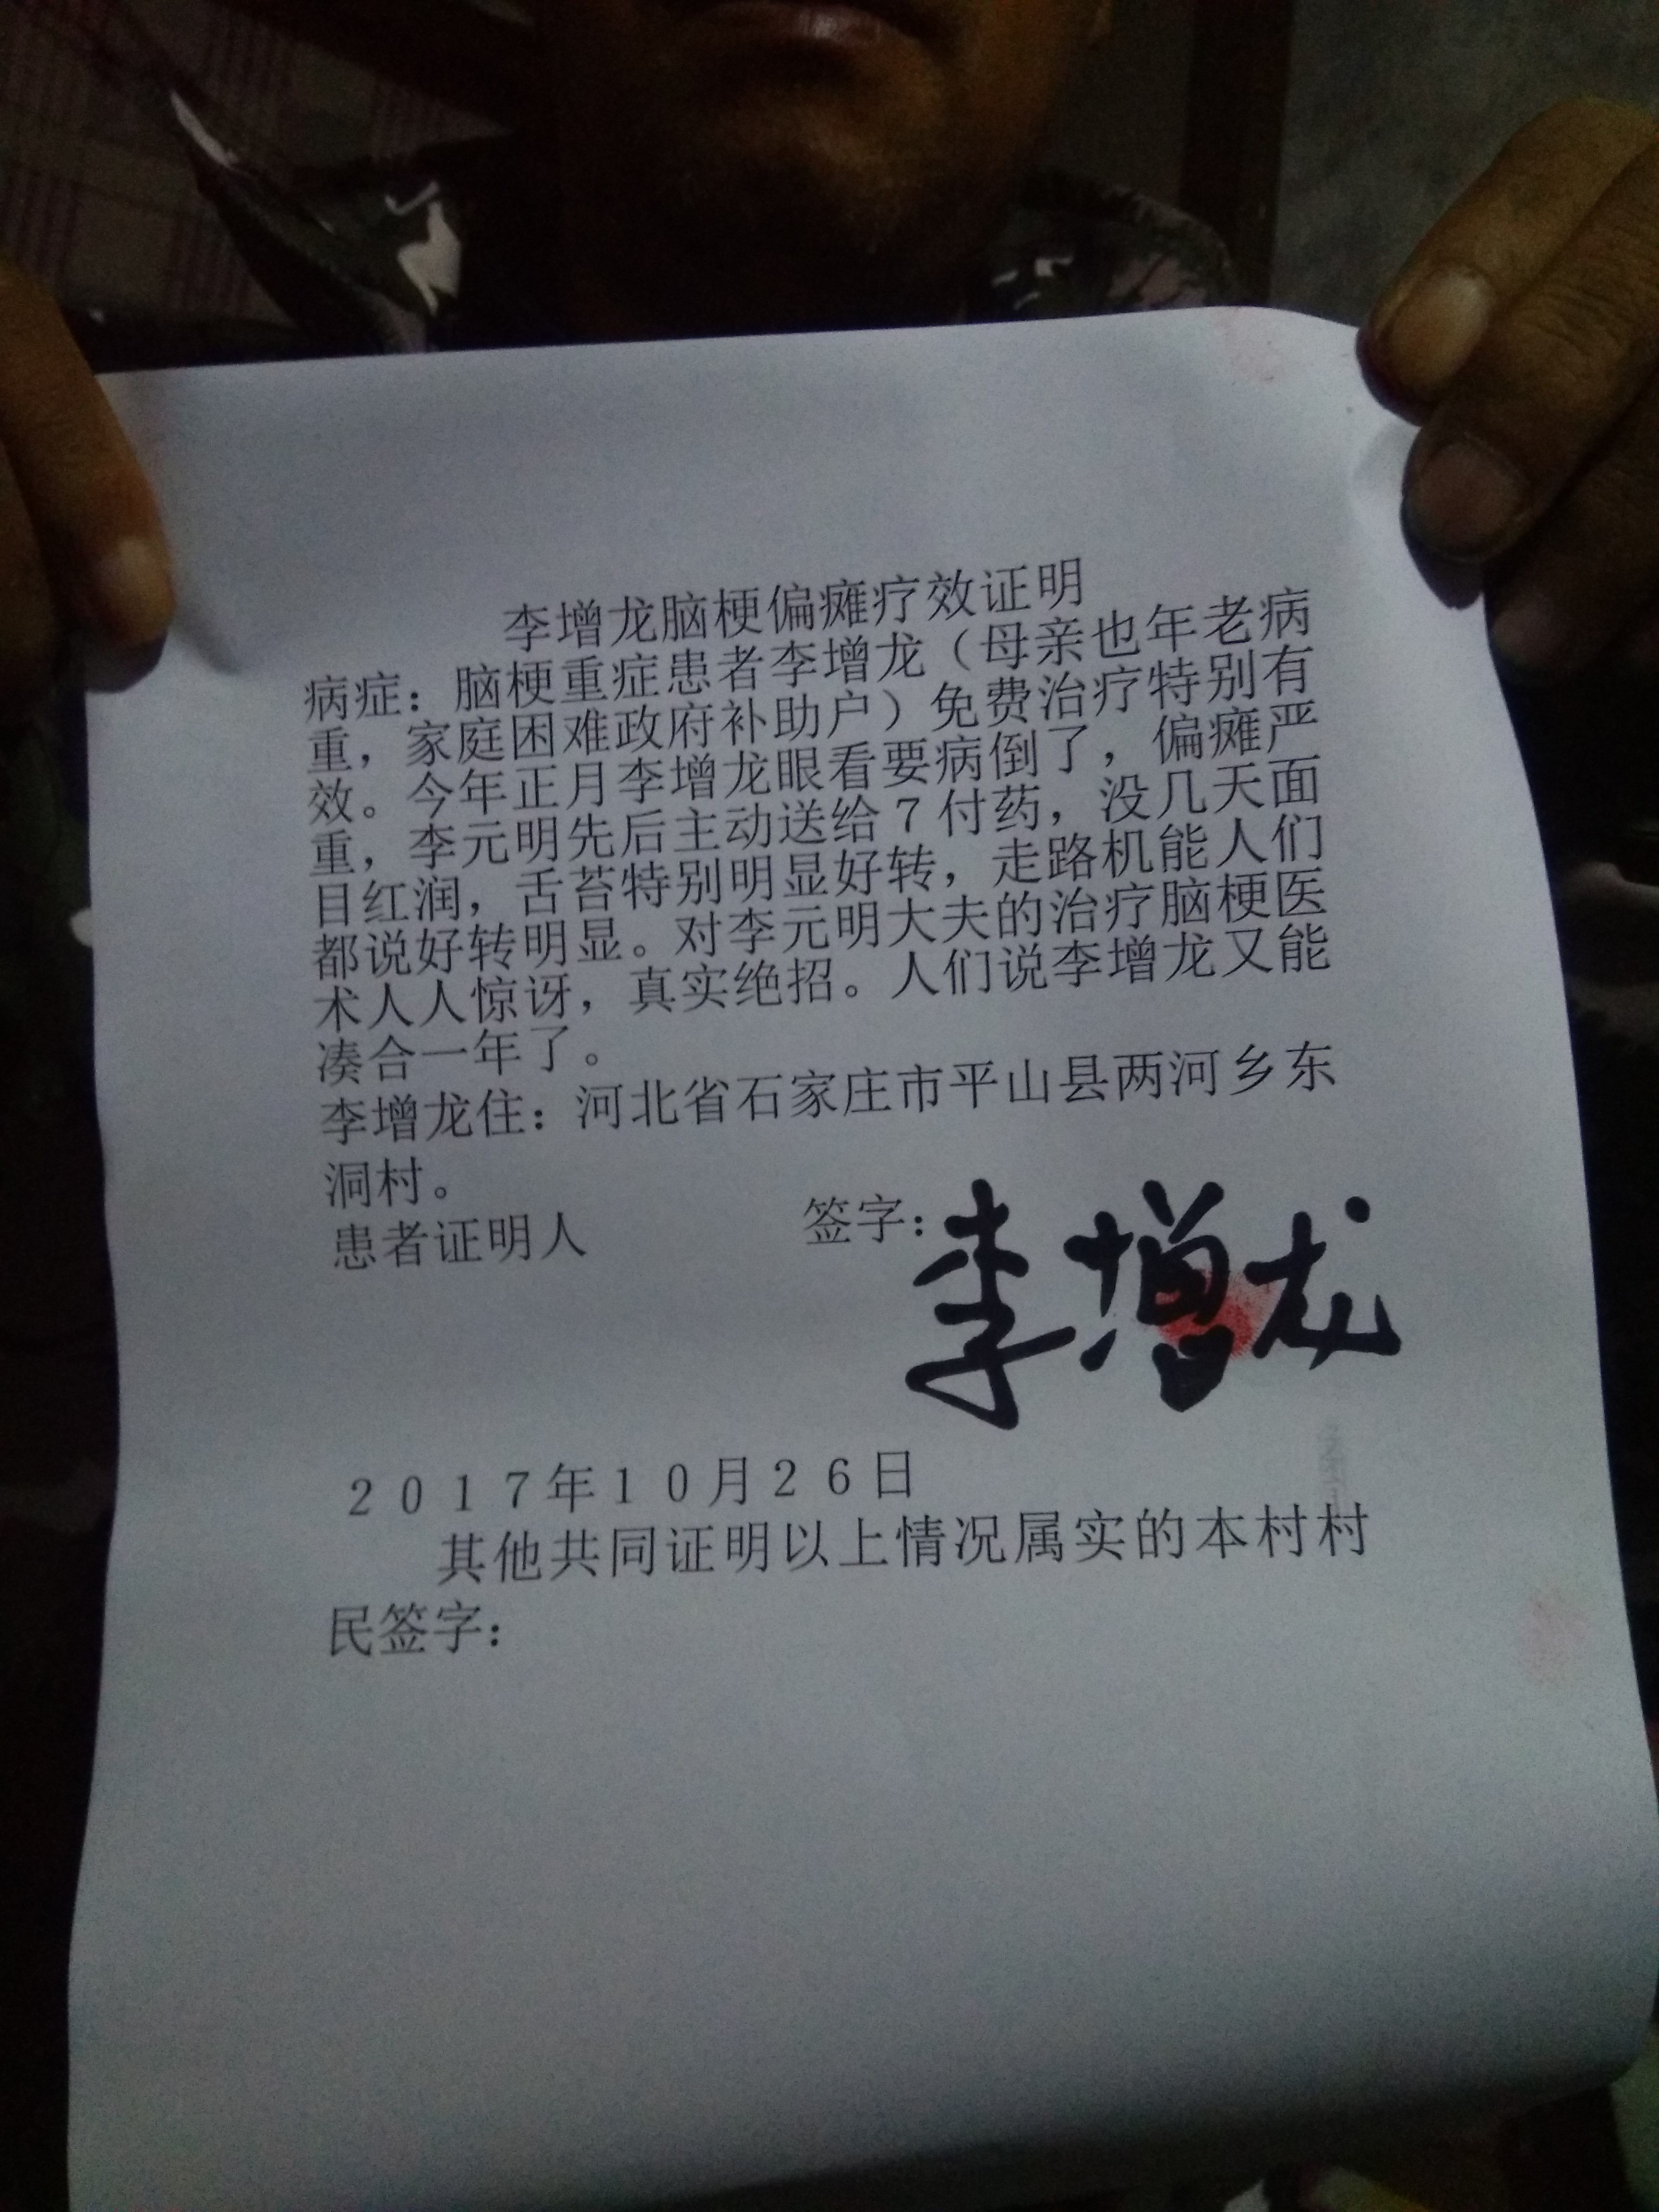 李增龙脑梗偏瘫疗效证明
病症：脑梗重症患者李增龙（母亲也年老病
重，家庭困难政府补助户）免费治疗特别有
效。今年正月李增龙眼看要病倒了，偏瘫严
重，李元明先后主动送给7付药，没几天面
目红润，舌苔特别明显好转，走路机能人们
都说好转明显。对李元明大夫的治疗脑梗医
术人人惊讶，真实绝招。人们说李增龙又能
凑合一年了。
李增龙住：河北省石家庄市平山县两河乡东
洞村。
患者证明人 签字：李增龙
2017年10月26日
其他共同证明以上情况属实的本村村
民签字：